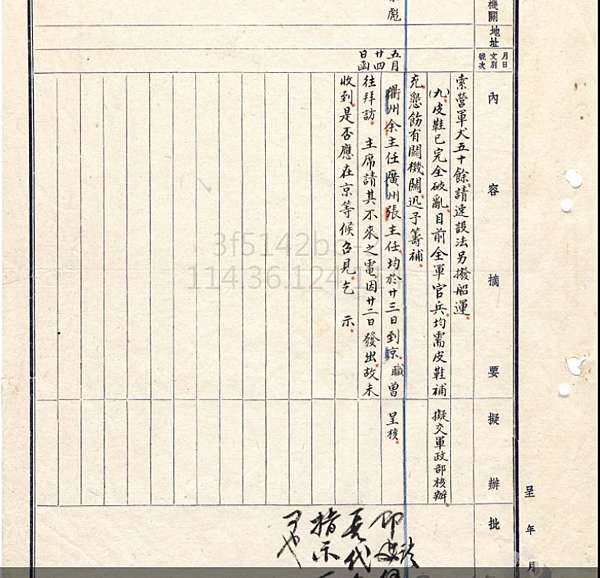 機關地址
月日
文別
號次
內容摘要
擬辦
批
呈 年 月
彪
索營軍犬五十餘請速設法另撥船運
(九)皮鞋已完全破亂目前全軍官兵均需皮鞋補
充懇飭有關機關迅予籌補
擬交軍政部核辦
五月
廿四
日函
衢州余主任廣州張主任均於廿三日到京職曾
往拜訪 主席請其不來之電因廿二日發出故未
收到是否應在京等候召見乞 示
呈核
指示
3f5142b
114.36.124.1